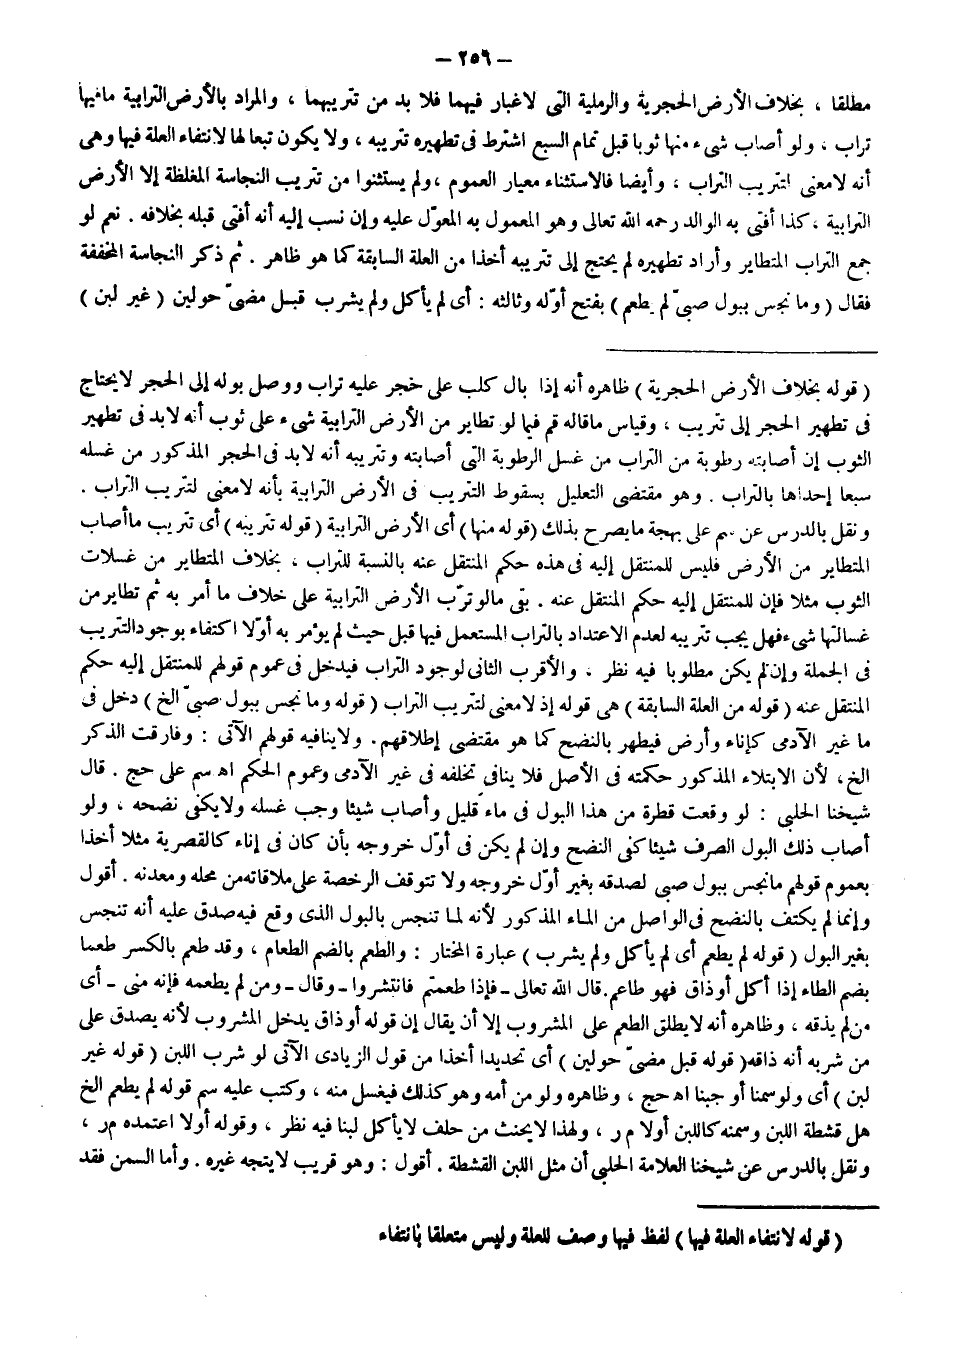 – ٢٥٦ –
مطلقا ، بخلاف الأرض الحجرية والرملية التى لاغبار فيهما فلا بد من تتريبهما ، والمراد بالأرض الترابية مافيها
تراب ، ولو أصاب شىء منها ثوبا قبل تمام السبع اشترط فى تطهيره تتريبه ، ولا يكون تبعا لها لانتفاء العلة فيها وهى
أنه لامعنى لتتريب التراب ، وأيضا فالاستثناء معيار العموم ، ولم يستثنوا من تتريب النجاسة المغلظة إلا الأرض
الترابية ، كذا أفتى به الوالد رحمه الله تعالى وهو المعمول به المعوّل عليه وإن نسب إليه أنه أفتى قبله بخلافه . نعم لو
جمع التراب المتطاير وأراد تطهيره لم يحتج إلى تتريبه أخذا من العلة السابقة كما هو ظاهر . ثم ذكر النجاسة المخففة
فقال ( وما نجس ببول صبىّ لم يطعم ) بفتح أوّله وثالثه : أى لم يأكل ولم يشرب قبل مضىّ حولين ( غير لبن )
( قوله بخلاف الأرض الحجرية ) ظاهره أنه إذا بال كلب على حجر عليه تراب ووصل بوله إلى الحجر لايحتاج
فى تطهير الحجر إلى تتريب ، وقياس ماقاله قم فيما لو تطاير من الأرض الترابية شىء على ثوب أنه لابد فى تطهير
الثوب إن أصابته رطوبة من التراب من غسل الرطوبة التى أصابته وتتريبه أنه لابد فى الحجر المذكور من غسله
سبعا إحداها بالتراب . وهو مقتضى التعليل بسقوط التتريب فى الأرض الترابية بأنه لامعنى لتتريب التراب .
ونقل بالدرس عن سم على بهجة مايصرح بذلك ( قوله منها ) أى الأرض الترابية ( قوله تتريبه ) أى تتريب ماأصاب
المتطاير من الأرض فليس للمنتقل إليه فى هذه حكم المنتقل عنه بالنسبة للتراب ، بخلاف المتطاير من غسلات
الثوب مثلا فإن للمنتقل إليه حكم المنتقل عنه . بقى مالو ترّب الأرض الترابية على خلاف ما أمر به ثم تطاير من
غسالتها شىء فهل يجب تتريبه لعدم الاعتداد بالتراب المستعمل فيها قبل حيث لم يؤمر به أوّلا اكتفاء بوجود التتريب
فى الجملة وإن لم يكن مطلوبا فيه نظر ، والأقرب الثانى لوجود التراب فيدخل فى عموم قولهم للمنتقل إليه حكم
المنتقل عنه ( قوله من العلة السابقة ) هى قوله إذ لامعنى لتتريب التراب ( قوله وما نجس ببول صبىّ الخ ) دخل فى
ما غير الآدمى كإناء وأرض فيطهر بالنضح كما هو مقتضى إطلاقهم . ولا ينافيه قولهم الآتى : وفارقت الذكر
الخ ، لأن الابتلاء المذكور حكمته فى الأصل فلا ينافى تخلفه فى غير الآدمى وعموم الحكم اه سم على حج . قال
شيخنا الحلبى : لو وقعت قطرة من هذا البول فى ماء قليل وأصاب شيئا وجب غسله ولا يكفى نضحه ، ولو
أصاب ذلك البول الصرف شيئا كفى النضح وإن لم يكن فى أوّل خروجه بأن كان فى إناء كالقصرية مثلا أخذا
بعموم قولهم مانجس ببول صبى لصدقه بغير أوّل خروجه ولا تتوقف الرخصة على ملاقاته من محله ومعدنه . أقول
وإنما لم يكتف بالنضح فى الواصل من الماء المذكور لأنه لما تنجس بالبول الذى وقع فيه صدق عليه أنه تنجس
بغير البول ( قوله لم يطعم أى لم يأكل ولم يشرب ) عبارة المختار : والطعم بالضم الطعام ، وقد طعم بالكسر طعما
بضم الطاء إذا أكل أو ذاق فهو طاعم . قال الله تعالى – فإذا طعمتم فانتشروا – وقال – ومن لم يطعمه فإنه منى – أى
من لم يذقه ، وظاهره أنه لايطلق الطعم على المشروب إلا أن يقال إن قوله أو ذاق يدخل المشروب لأنه يصدق على
من شربه أنه ذاقه ( قوله قبل مضىّ حولين ) أى تحديدا أخذا من قول الزيادى الآتى لو شرب اللبن ( قوله غير
لبن ) أى ولو سمنا أو جبنا اه حج ، وظاهره ولو من أمه وهو كذلك فيغسل منه ، وكتب عليه سم قوله لم يطعم الخ
هل قشطة اللبن وسمنه كاللبن أولا م ر ، ولهذا لايحنث من حلف لايأكل لبنا فيه نظر ، وقوله أولا اعتمده م ر ،
ونقل بالدرس عن شيخنا العلامة الحلبى أن مثل اللبن القشطة . أقول : وهو قريب لايتجه غيره . وأما السمن فقد
( قوله لانتفاء العلة فيها ) لفظ فيها وصف للعلة وليس متعلقا بانتفاء